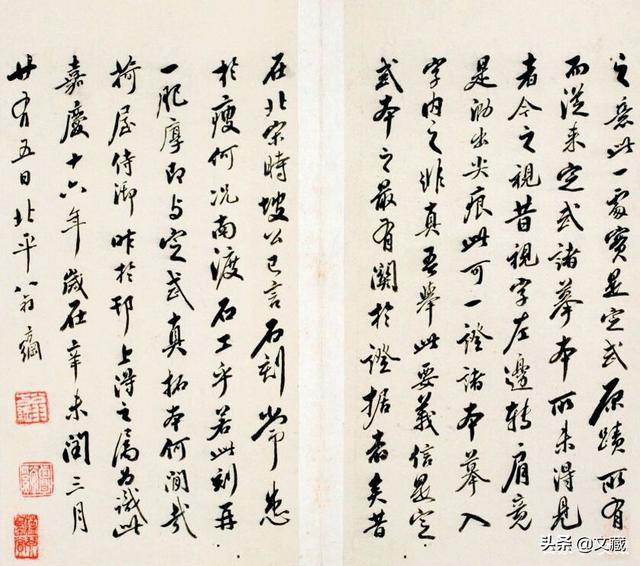 之意此一處實是定武原蹟所有
而從来定武諸摹本所未得見
者今之視昔視字左邊轉肩竟
是泐出尖痕此可一證諸本摹入
字内之非真吾舉此要義信是定
武本之最有關於證據者矣昔
在北宋時坡公已言石刻常患
於瘦何况南渡石工乎若此刻再
一肥摩即与定武真拓本何間哉
荷屋侍御昨於邗上得之属为識此
嘉慶十六年歲在辛未閏三月
廿有五日北平翁方綱
头条 @文藏